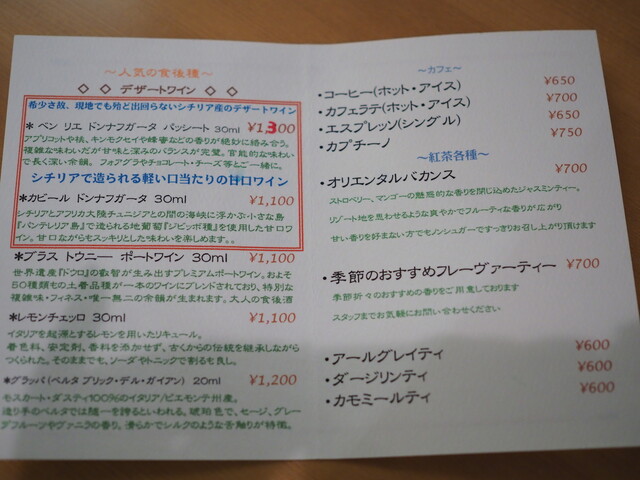 ～人気の食後種～
◇ ◇ デザートワイン ◇ ◇
希少さ故、現地でも殆ど出回らないシチリア産のデザートワイン
* ベン リエ ドンナフガータ パッシート 30ml ¥1,300
アプリコットや桔、キンモクセイや蜂蜜などの香りが絶妙に絡み合う。
複雑な味わいだが甘味と深みのバランスが完璧。官能的な味わい
で長く深い余韻。 フォアグラやチョコレート・チーズ等とご一緒に。
シチリアで造られる軽い口当たりの甘口ワイン
*カビール ドンナフガータ 30ml ¥1,100
シチリアとアフリカ大陸チュニジアとの間の海峡に浮かぶ小さな島
『パンテレリア島』で造られる地葡萄『ジビッボ種』を使用した甘口ワ
イン。甘口ながらもスッキリとした味わいを楽しめます。。
*プラス トウニー ポートワイン 30ml ¥1,100
世界遺産『ドウロ』の叡智が生み出すプレミアムポートワイン。およそ
50種類もの土着品種が一本のワインにブレンドされており、特別な
複雑味・フィネス・唯一無二の余韻が生まれます。大人の食後酒
*レモンチェッロ 30ml ¥1,100
イタリアを起源とするレモンを用いたリキュール。
着色料、安定剤、香料を添かせず、古くからの伝統を継承しながら
つくられた。そのままでも、ソーダやトニックで割るも良し。
*グラッパ(ベルタ ブリック・デル・ガイアン) 20ml ¥1,200
モスカート・ダスティ100%のイタリア/ピエモンテ州産。
造り手のベルタでは随一を誇るといわれる、琥珀色で、セージ、グレー
プフルーツやヴァニラの香り。滑らかでシルクのような舌触りが特徴。
～カフェ～
・コーヒー(ホット・アイス) ¥650
・カフェラテ(ホット・アイス) ¥700
・エスプレッソ(シングル) ¥650
・カプチーノ ¥750
～紅茶各種～
・オリエンタルバカンス ¥700
ストロベリー、マンゴーの魅惑的な香りを閉じ込めたジャスミンティー。
リゾート地を思わせるような爽やかでフルーティな香りが広がり
甘い香りを好まない方でもノンシュガーですっきりお召し上がり頂けます
・季節のおすすめフレーヴァーティー ¥700
季節折々のおすすめの香りをご用意しております
スタッフまでお気軽にお問い合わせください
・アールグレイティ ¥600
・ダージリンティ ¥600
・カモミールティ ¥600